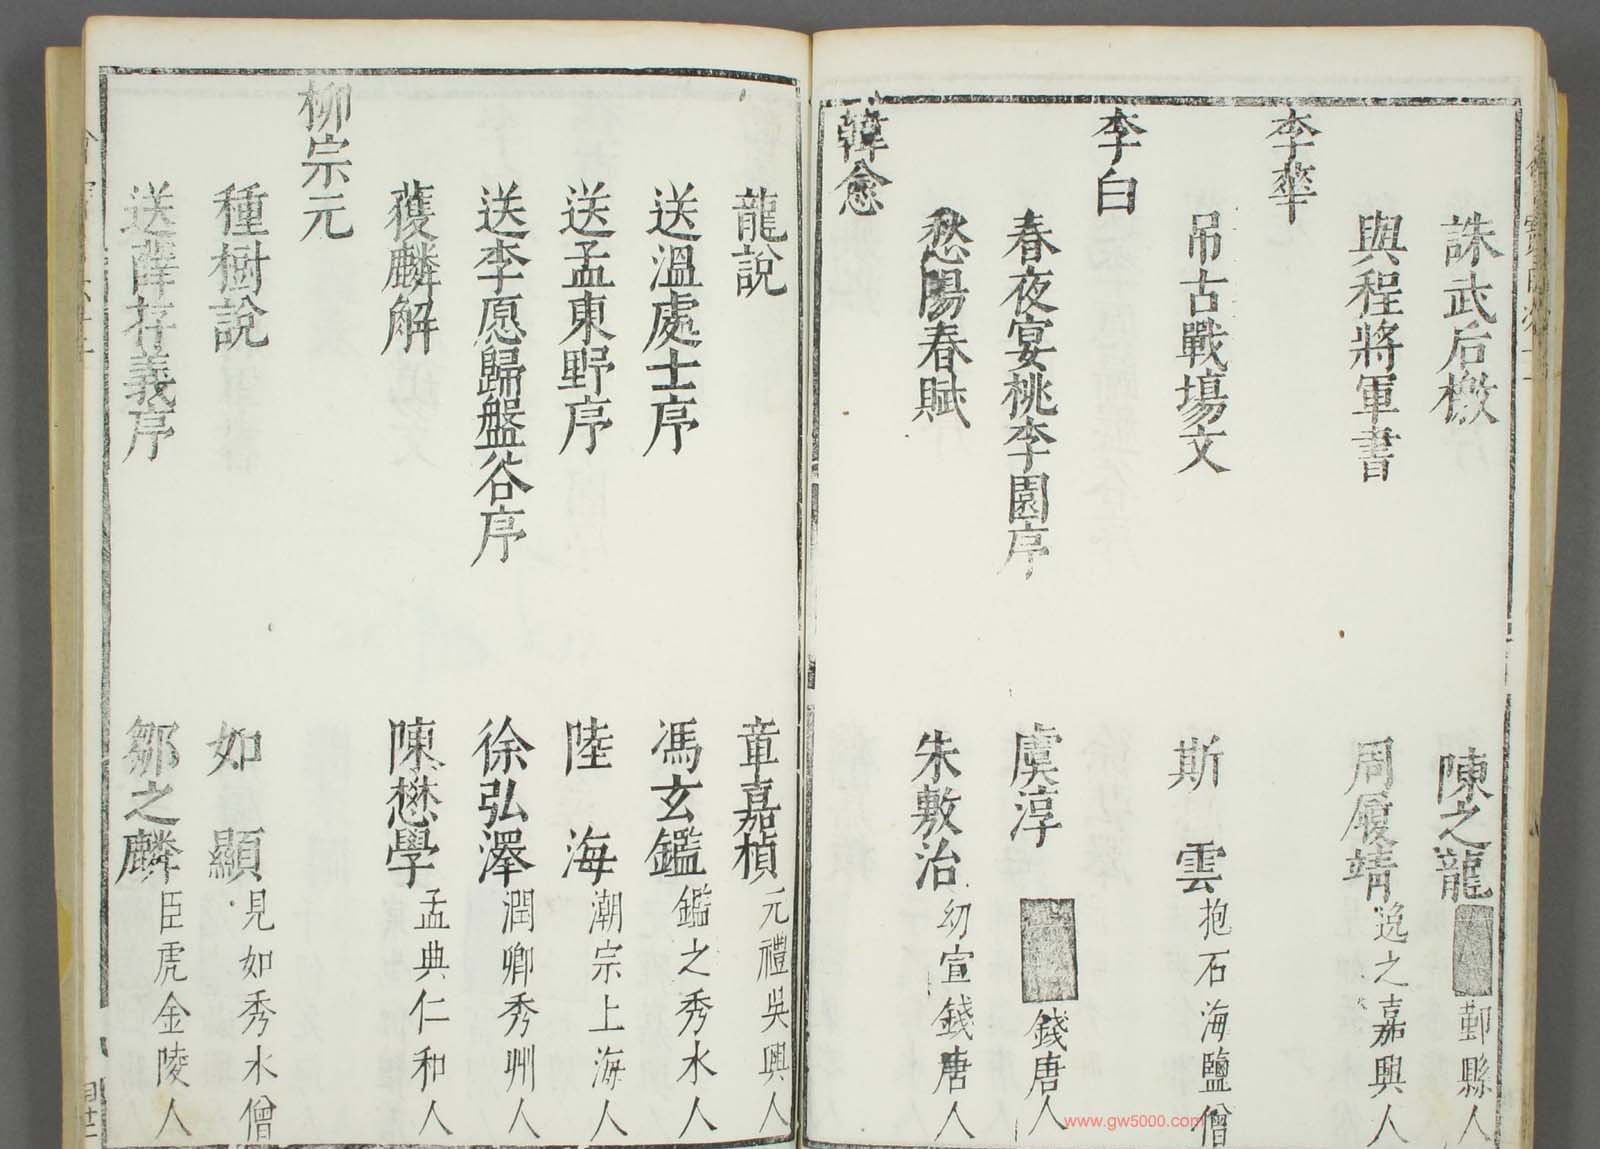 誅武后檄 陳之龍 鄞縣人
與程將軍書 周履靖 逸之嘉興人
李華
吊古戰場文 斯雲 抱石海鹽僧
李白
春夜宴桃李園序 虞淳 錢唐人
愁陽春賦 朱敷治 幼宣錢唐人
韓愈
龍說 章嘉楨 元禮吳興人
送溫處士序 馮玄鑑 鑑之秀水人
送孟東野序 陸海 潮宗上海人
送李愿歸盤谷序 徐弘澤 潤卿秀州人
獲麟解 陳懋學 孟典仁和人
柳宗元
種樹說 如顯 見如秀水僧
送薛存義序 鄒之麟 臣虎金陵人
www.gw5000.com